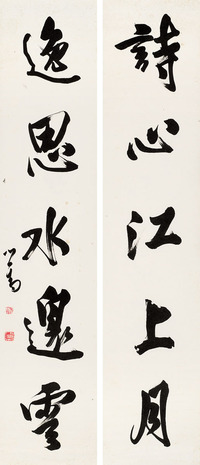 詩心江上月
逸思水邊雲
心畬